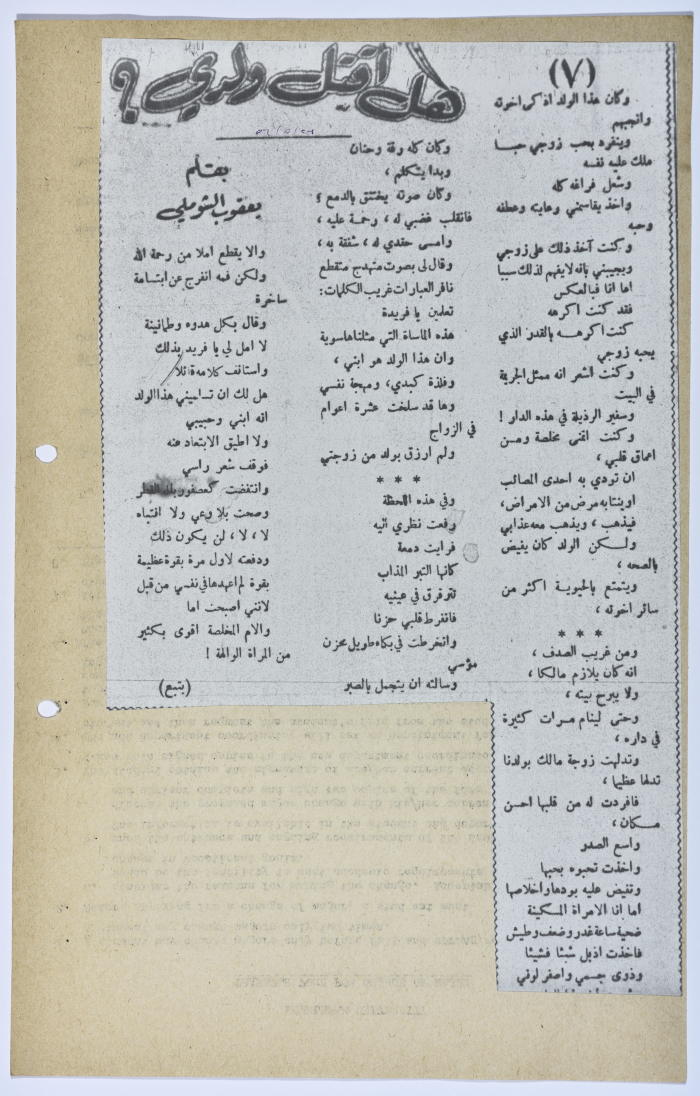 هل اقتل ولدي ؟
بقلم
يعقوب الشوملي
(٧)
وكان هذا الولد اذكى اخوته
وانجبهم
وينفرد بحب زوجي حبا
ملك عليه نفسه
وشغل فراغه كله
واخذ يقاسمني رعايته وعطفه
وحبه
وكنت آخذ ذلك على زوجي
ويجيبني بانه لا يفهم لذلك سببا
اما انا فبالعكس
فقد كنت اكرهه
كنت اكرهه بالقدر الذي
يحبه زوجي
وكنت اشعر انه ممثل الجريمة
في البيت
وسفير الرذيلة في هذه الدار !
وكنت اتمنى مخلصة ومن
اعماق قلبي ،
ان تودي به احدى المصائب
او ينتابه مرض من الامراض ،
فيذهب ، ويذهب معه عذابي
ولكن الولد كان يفيض
بالصحة ،
ويتمتع بالحيوية اكثر من
سائر اخوته ،
* * *
ومن غريب الصدف ،
انه كان يلازم مالكا ،
ولا يبرح بيته ،
وحتى لينام مرات كثيرة
في داره ،
وتدلهت زوجة مالك بولدنا
تدلها عظيما ،
فافردت له من قلبها احسن
مكان ،
واسع الصدر
واخذت تحبوه بحبها
وتفيض عليه بودها واخلاصها
اما انا الامراة المسكينة
ضحية ساعة غدر وضعف وطيش
فاخذت اذبل شيئا فشيئا
وذوى جسمي واصفر لوني
وكان كله رقة وحنان
وبدا يتكلم ،
وكان صوته يختنق بالدمع ؛
فانقلب غضبي له ، رحمة عليه ،
وامسى حقدي له ، شفقة به ،
وقال لي بصوت متهدج متقطع
نافر العبارات غريب الكلمات :
تعلمين يا فريدة
هذه الماساة التي مثلناها سوية
وان هذا الولد هو ابني ،
وفلذة كبدي ، ومهجة نفسي
وها قد سلخت عشرة اعوام
في الزواج
ولم ارزق بولد من زوجتي
* * *
وفي هذه اللحظة
رفعت نظري اليه
فرايت دمعة
كانها التبر المذاب
تترقرق في عينيه
فانفرط قلبي حزنا
وانخرطت في بكاء طويل محزن
مؤسي
وسالته ان يتجمل بالصبر
والا يقطع املا من رحمة الله
ولكن فمه انفرج عن ابتسامة
ساخرة
وقال بكل هدوء وطمانينة
لا امل لي يا فريد بذلك
واستانف كلامه قائلا
هل لك ان تساميني هذا الولد
انه ابني وحبيبي
ولا اطيق الابتعاد عنه
فوقف شعر راسي
وانتفضت كعصفور بلله القطر
وصحت بلا وعي ولا انتباه
لا ، لا ، لن يكون ذلك
ودفعته لاول مرة بقوة عظيمة
بقوة لم اعهدها في نفسي من قبل
لانني اصبحت اما
والام المخلصة اقوى بكثير
من المراة الوالهة !
(يتبع)